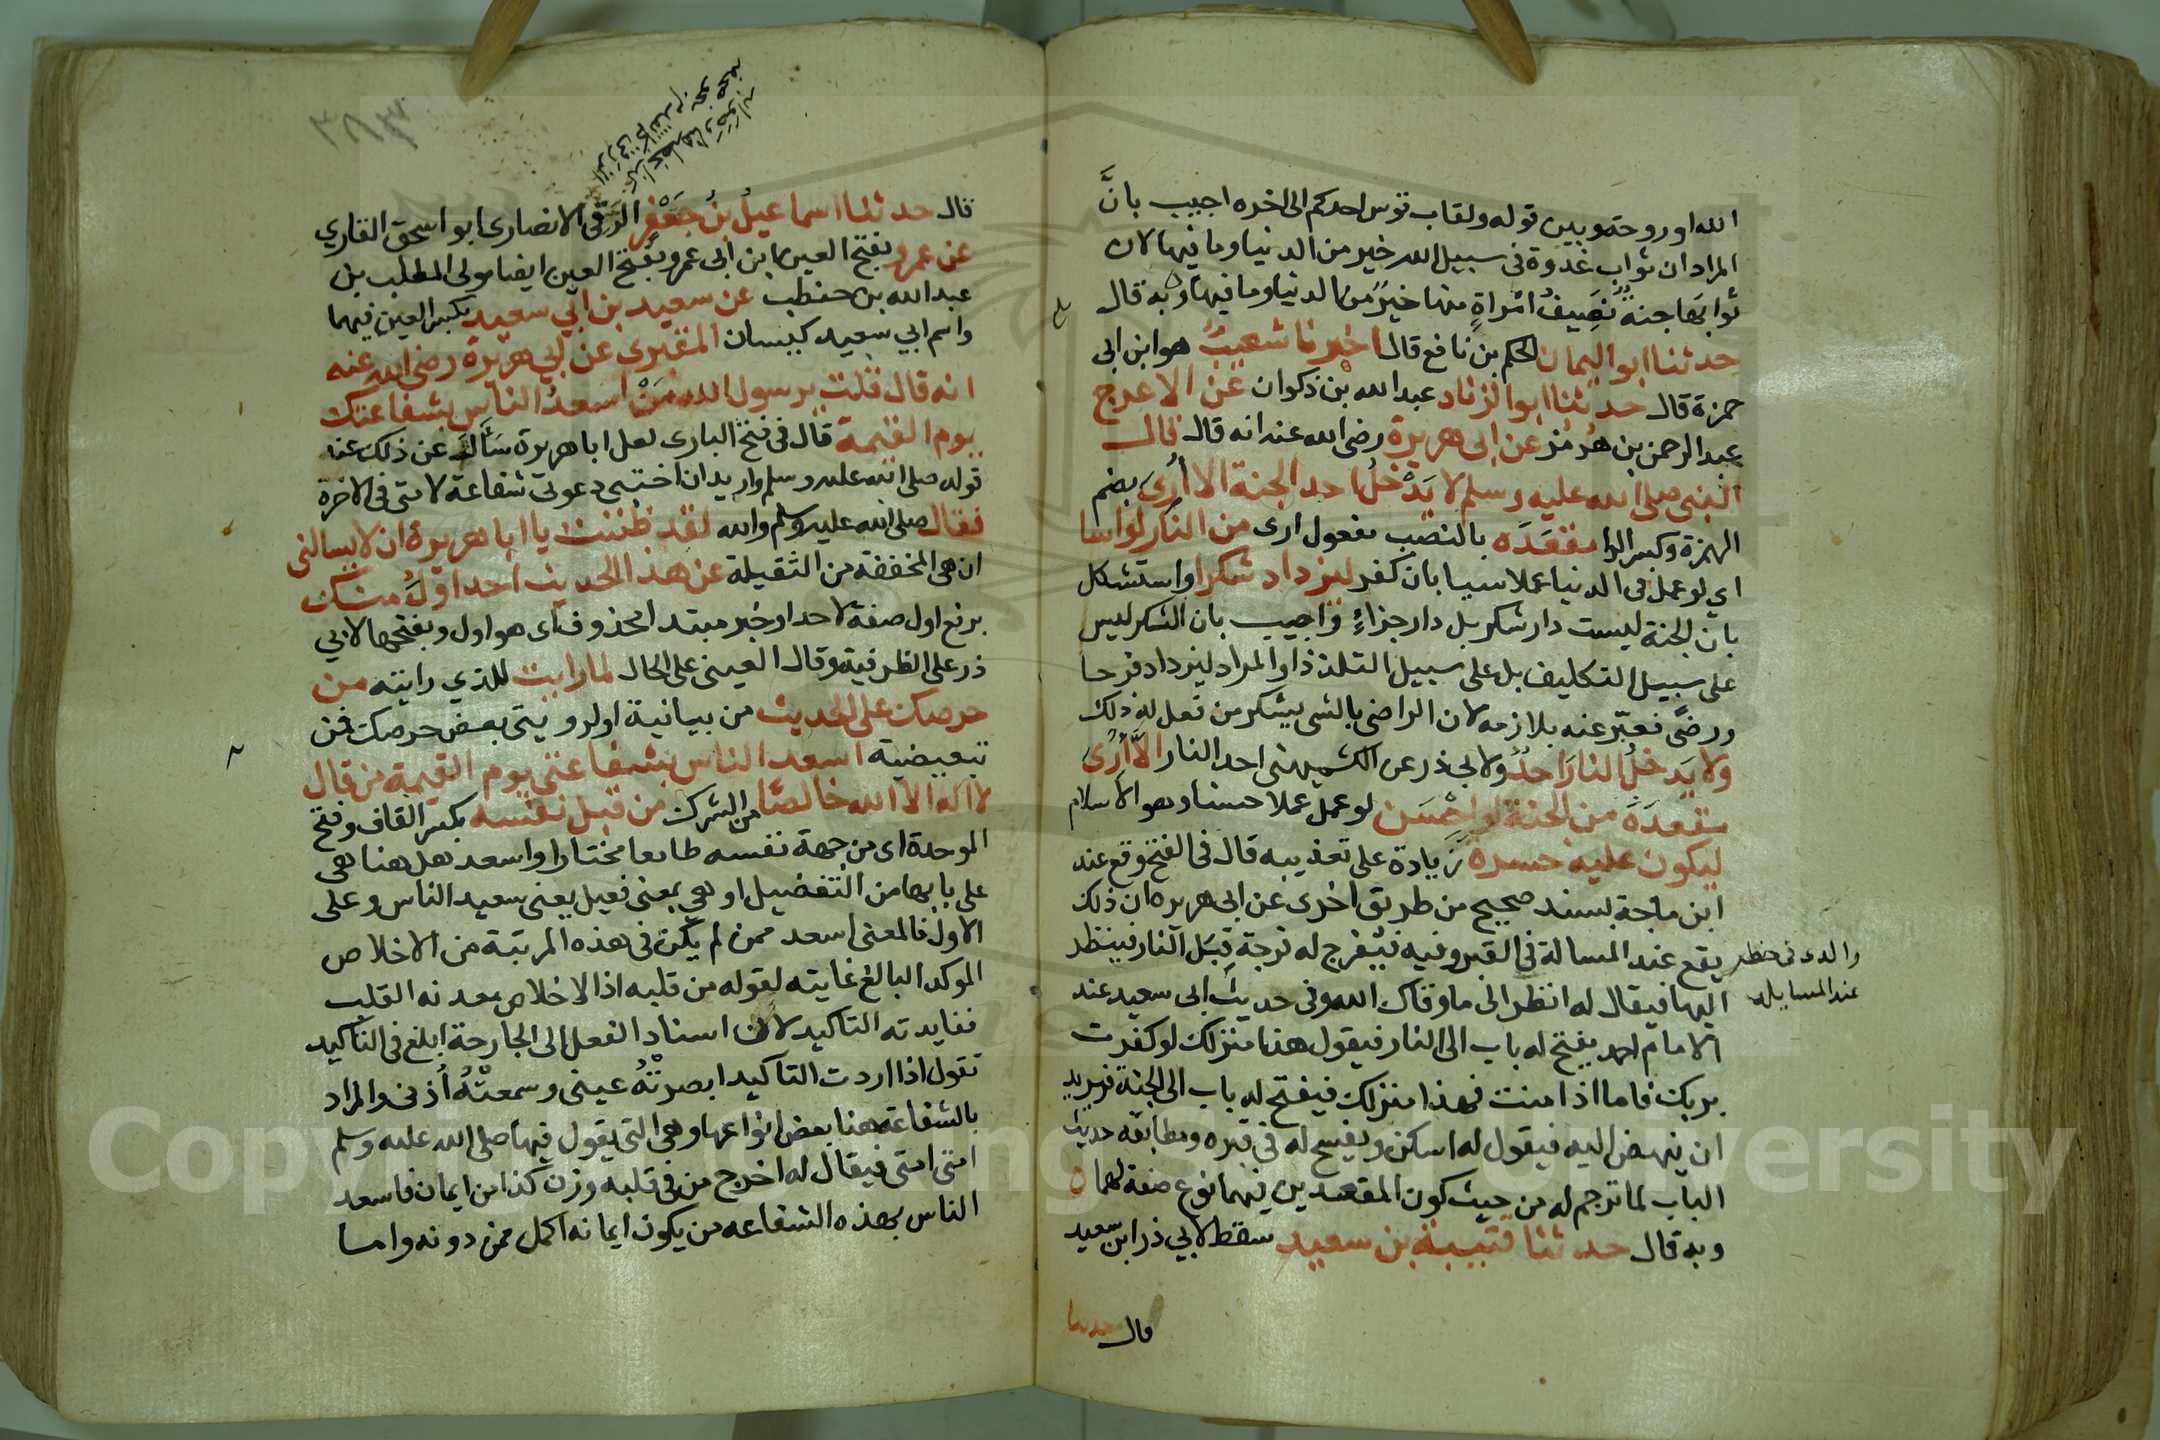 الله او روحته وبين قوله ولقاب قوس احدكم الى اخره اجيب بانَّ
المراد ان ثواب غدوة في سبيل الله خير من الدنيا وما فيها لان
ثوابها جنة نَصيفُ امراةٍ منها خيرٌ من الدنيا وما فيها وبه قال
حدثنا ابو اليمان الحكم بن نافع قال اخبرنا شعيبٌ هو ابن ابى
حمزة قال حدثنا ابو الزناد عبد الله بن ذكوان عن الاعرج
عبد الرحمن بن هُرمز عن ابى هريرة رضى الله عنه انه قال قال
النبى صلى الله عليه وسلم لا يَدْخلُ احد الجنة الا أُرِىَ بضم
الهمزة وكسر الرا مقعَدَه بالنصب مفعول ارى من النار لو اسا
اي لو عمل في الدنيا عملا سييا بان كفر ليزداد شكرا واستشكل
بان الجنة ليست دار شكر بل دار جزاءٍ واجيب بان الشكر ليس
على سبيل التكليف بل على سبيل التلذذ او المراد ليزداد فرحا
ورضًى فعبّر عنه بلازمه لان الراضى بالشى يشكر من فعل له ذلك
ولا يَدخلُ النارَ احدٌ ولابى ذر عن الكشميهنى احد النار الاَّ أُرِىَ
مقعدَهُ من الجنة لو احْسَن لو عمل عملا حسنا وهو الاسلام
ليكون عليه حسرة زيادة على تعذيبه قال فى الفتح وقع عند
ابن ماجة بسند صحيح من طريق اخرى عن ابى هريره ان ذلك
يقع عند المسالة في القبر وفيه فيُفرج له فرجة قِبَل النار فينظر
اليها فيقال له انظر الى ما وقاك الله وفى حديث ابى سعيد عند
الامام احمد يفتح له باب الى النار فيقول هذا منزلك لو كفرت
بربك فاما اذ امنت فهذا منزلك فيفتح له باب الى الجنة فيريد
ان ينهض اليه فيقول له اسكن ويفسح له في قبره ومطابقة حديث
الباب لما ترجم له من حيث كون المقعدين فيهما نوع صفة لهما ه
وبه قال حدثنا قتيبة بن سعيد سقط لابي ذر ابن سعيد
قال حدثنا
عند المسايله
قال حدثنا اسماعيلُ بنُ جَعْفر الزرقى الانصارى ابو اسحق القاري
عن عمرو بفتح العين ابن ابى عمرو بفتح العين ايضا مولى المطلب بن
عبد الله بن حنطب عن سعيد بن ابي سعيد بكسر العين فيهما
واسم ابي سعيد كيسان المقبرى عن ابي هريرة رضى الله عنه
انه قال قلت يرسول الله مَنْ اسعدُ الناس بشفاعتك
يوم القيمة قال في فتح البارى لعل ابا هريرة سَاَلَ عن ذلك عند
قوله صلى الله عليه وسلم واريد ان اختبى دعوتى شفاعة لامتى فى الاخرة
فقال صلى الله عليه وسلم والله لقد ظننت يا ابا هريرة ان لا يسالنى
ان هى المخففة من الثقيلة عن هذا الحديث احد اوّلُ منك
برفع اول صفة لاحد او خبر مبتدا محذوف اى هو اول وبفتحها لابي
ذر على الظرفية وقال العينى على الحال لما رايت للذي رايته من
حرصك على الحديث من بيانية او لرويتى بعض حرصك فمن
تبعيضية اسعد الناس بشفاعتى يوم القيمة من قال
لا اله الا الله خالصًا من الشرك من قبل نفسه بكسر القاف وفتح
الموحدة اى من جهة نفسه طايعا مختارا واسعد هل هنا هى
على بابها من التفضيل او هى بمعنى فعيل يعنى سعيد الناس وعلى
الاول فالمعنى اسعد ممن لم يكن فى هذه المرتبة من الاخلاص
الموكد البالغ غايته لقوله من قلبه اذ الاخلاص معدنه القلب
ففايدته التاكيد لان اسناد الفعل الى الجارحة ابلغ فى التاكيد
تقول اذا اردت التاكيد ابصرتْهُ عينى وسمعتْهُ أُذنى والمراد
بالشفاعة هنا بعض انواعها وهى التى يقول فيها صلى الله عليه وسلم
امتى امتى فيقال له اخرج من فى قلبه وزن كذا من ايمان فاسعد
الناس بهذه الشفاعه من يكون ايمانه اكمل ممن دونه واما
Copyright © King Saud University